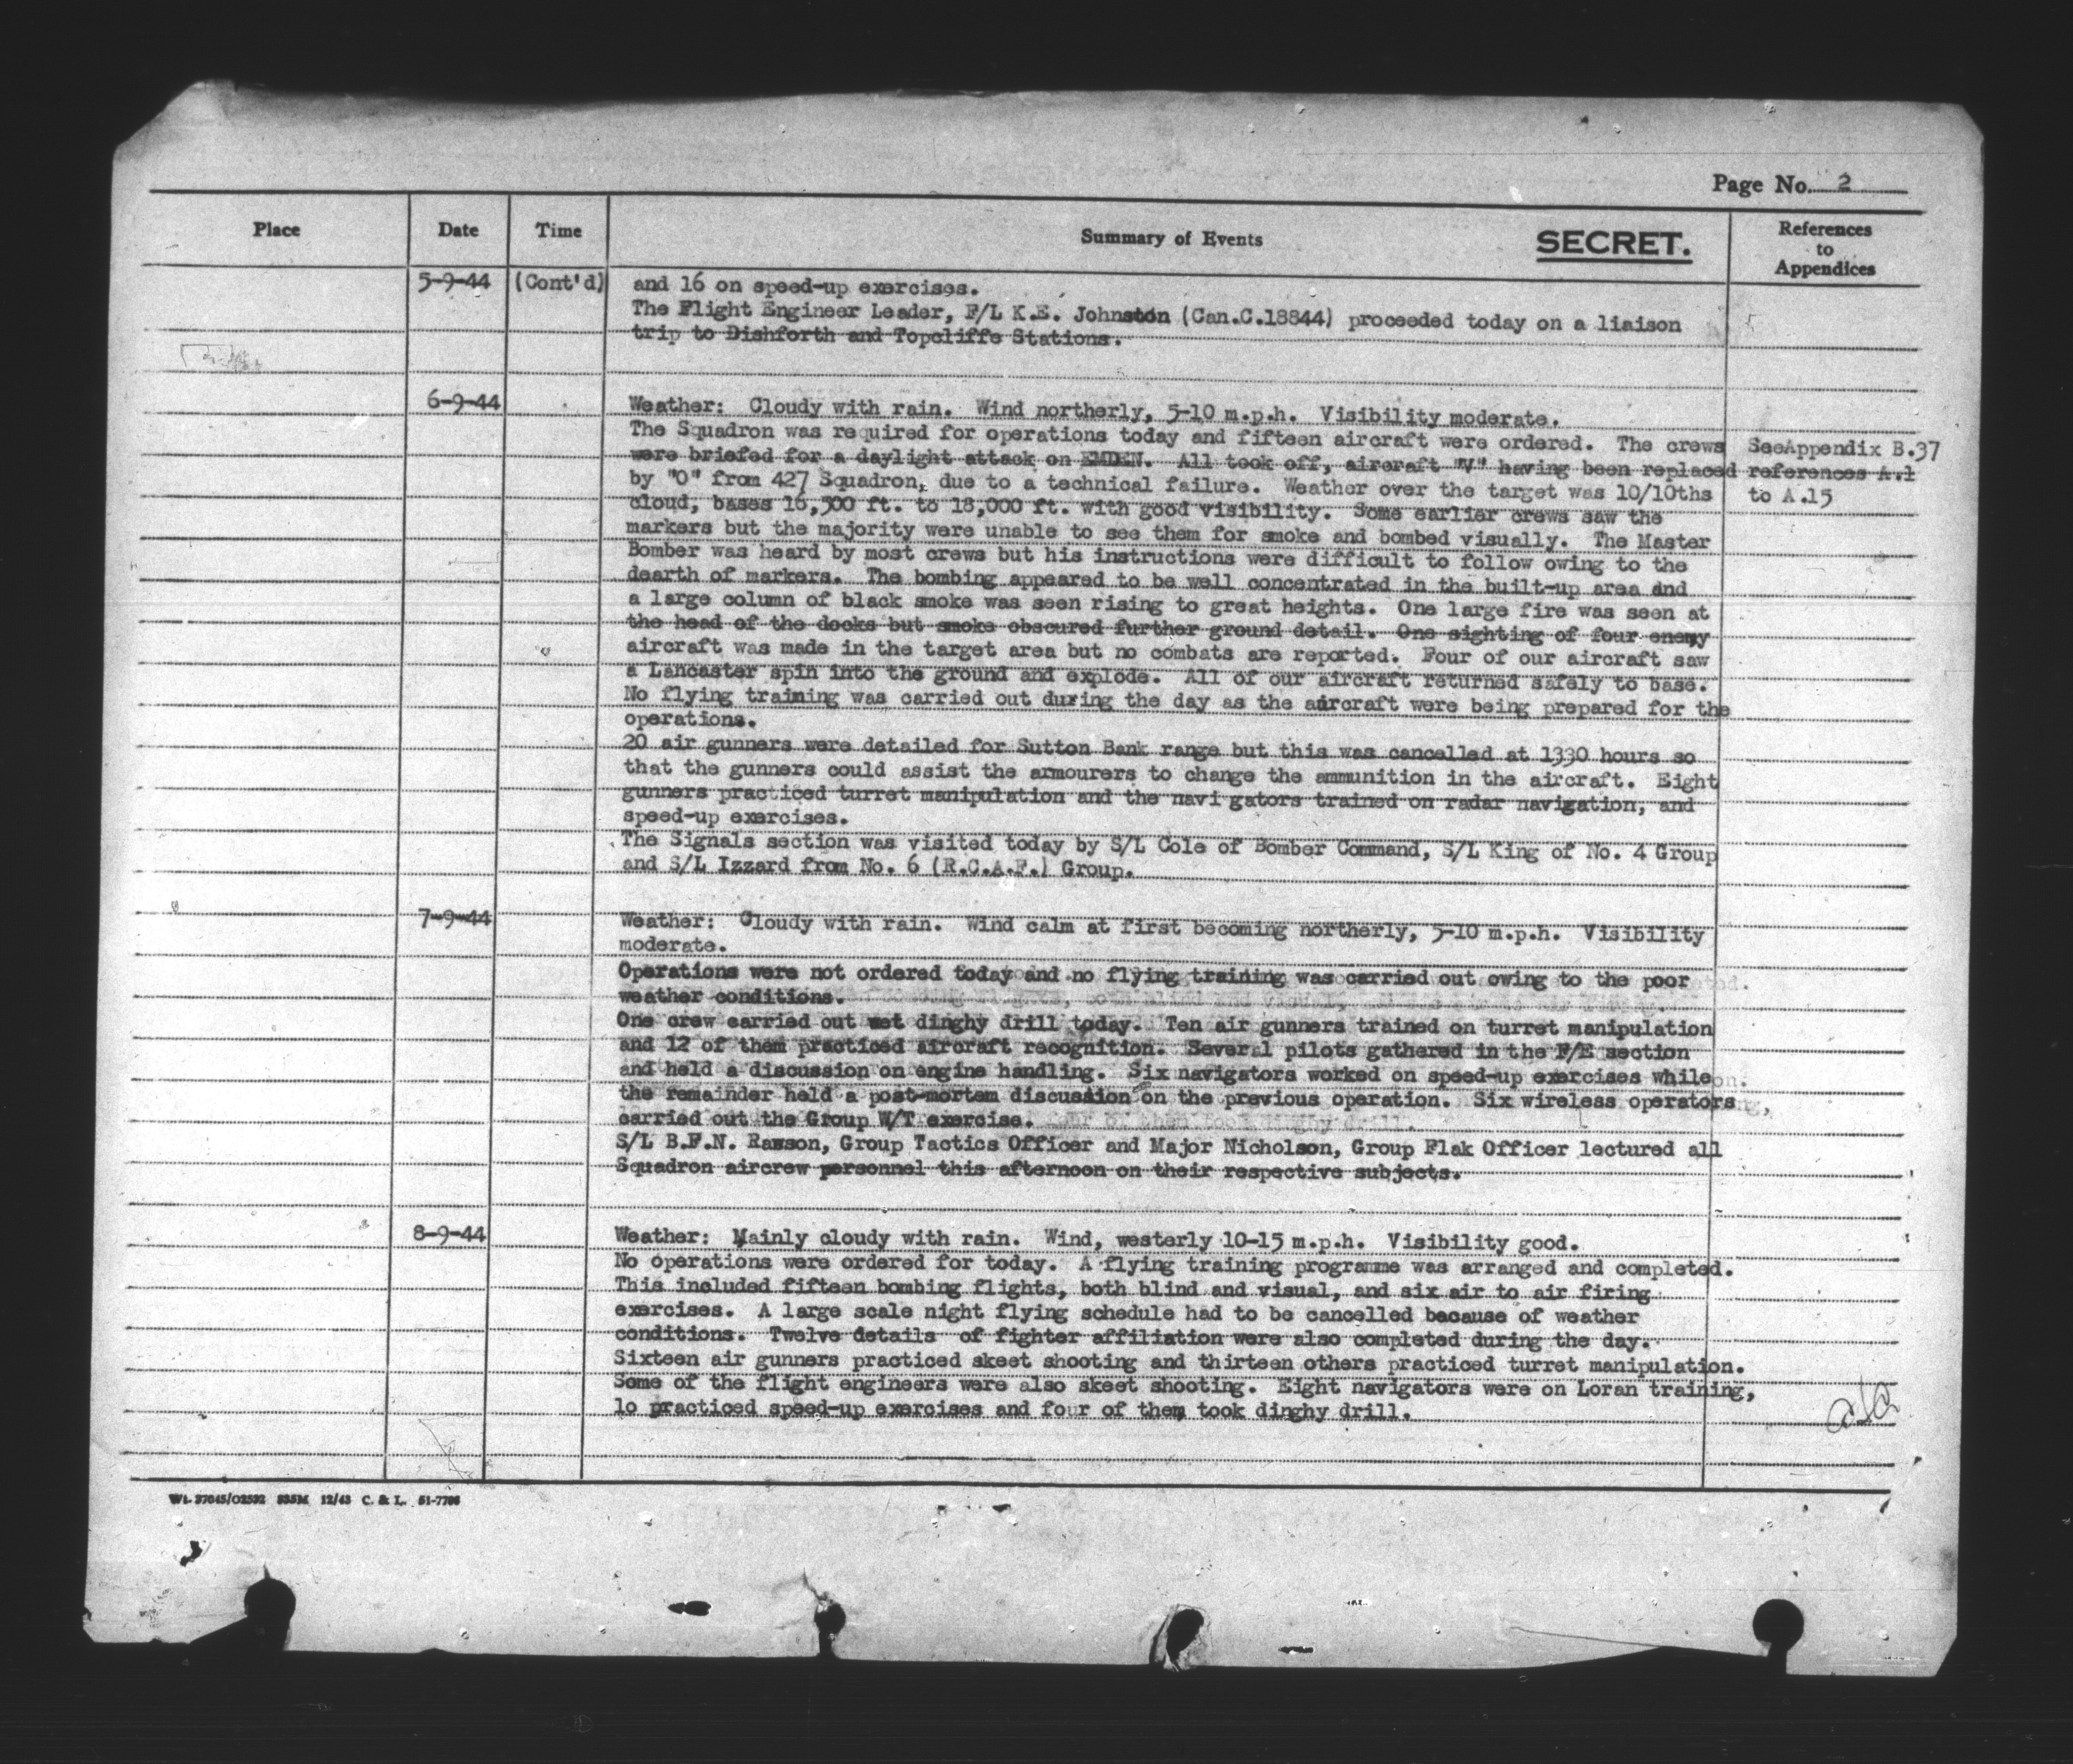 Page No. 2
Place Date Time Summary of Events SECRET. References to Appendices
5-9-44 (Cont'd) and 16 on speed-up exercises.
The Flight Engineer Leader, F/L K.E. Johnston (Can.C.18844) proceeded today on a liaison
trip to Dishforth and Topcliffe Stations.
6-9-44 Weather: Cloudy with rain. Wind northerly, 5-10 m.p.h. Visibility moderate.
The Squadron was required for operations today and fifteen aircraft were ordered. The crews SeeAppendix B.37
were briefed for a daylight attack on EMDEN. All took off, aircraft "V" having been replaced references A.1
by "O" from 427 Squadron, due to a technical failure. Weather over the target was 10/10ths to A.15
cloud, bases 16,500 ft. to 18,000 ft. with good visibility. Some earlier crews saw the
markers but the majority were unable to see them for smoke and bombed visually. The Master
Bomber was heard by most crews but his instructions were difficult to follow owing to the
dearth of markers. The bombing appeared to be well concentrated in the built-up area and
a large column of black smoke was seen rising to great heights. One large fire was seen at
the head of the docks but smoke obscured further ground detail. One sighting of four enemy
aircraft was made in the target area but no combats are reported. Four of our aircraft saw
a Lancaster spin into the ground and explode. All of our aircraft returned safely to base.
No flying training was carried out during the day as the aircraft were being prepared for the
operations.
20 air gunners were detailed for Sutton Bank range but this was cancelled at 1330 hours so
that the gunners could assist the armourers to change the ammunition in the aircraft. Eight
gunners practiced turret manipulation and the navi gators trained on radar navigation, and
speed-up exercises.
The Signals section was visited today by S/L Cole of Bomber Command, S/L King of No. 4 Group
and S/L Izzard from No. 6 (R.C.A.F.) Group.
7-9-44 Weather: Cloudy with rain. Wind calm at first becoming northerly, 5-10 m.p.h. Visibility
moderate.
Operations were not ordered today and no flying training was carried out owing to the poor
weather conditions.
One crew carried out wet dinghy drill today. Ten air gunners trained on turret manipulation
and 12 of them practiced aircraft recognition. Several pilots gathered in the F/E section
and held a discussion on engine handling. Six navigators worked on speed-up exercises while
the remainder held a post-mortem discussion on the previous operation. Six wireless operators
carried out the Group W/T exercise.
S/L B.F.N. Rawson, Group Tactics Officer and Major Nicholson, Group Flak Officer lectured all
Squadron aircrew personnel this afternoon on their respective subjects.
8-9-44 Weather: Mainly cloudy with rain. Wind, westerly 10-15 m.p.h. Visibility good.
No operations were ordered for today. A flying training programme was arranged and completed.
This included fifteen bombing flights, both blind and visual, and six air to air firing
exercises. A large scale night flying schedule had to be cancelled because of weather
conditions. Twelve details of fighter affiliation were also completed during the day.
Sixteen air gunners practiced skeet shooting and thirteen others practiced turret manipulation.
Some of the flight engineers were also skeet shooting. Eight navigators were on Loran training,
lo practiced speed-up exercises and four of them took dinghy drill.
Wt. 37045/O2592 535M 12/43 C. & L. 51-7706